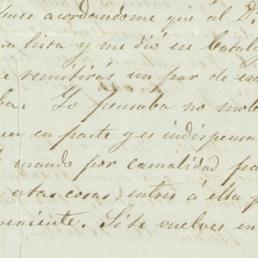 acordandome que al D
lista y me dió su Catal
remitirás un par de
Yo pensaba no mole
en parte y es indispensa
cuando por casualidad pa
estas cosas, entres á ella p
veniente. Si te vuelves en